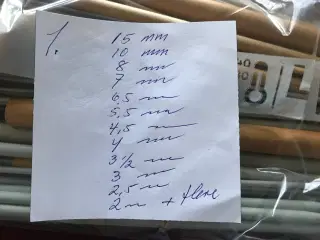 1.
15 mm
10 mm
8 mm
7 mm
6,5 m
5,5 mm
4,5 m
4 mm
3 1/2 m
3 m
2,5 m
2 m + flere
40